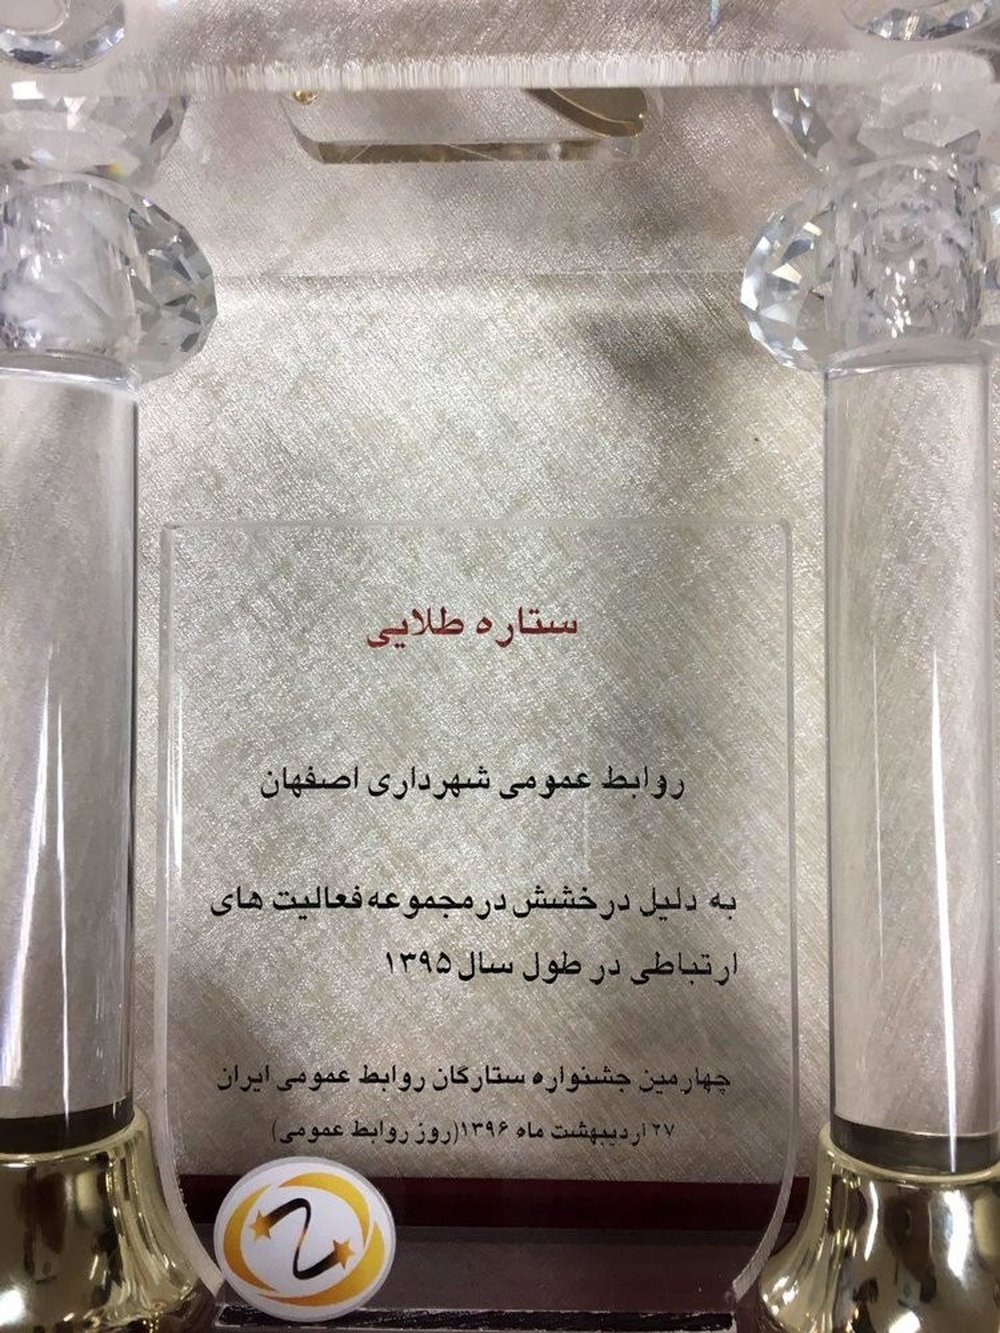 ستاره طلایی
روابط عمومی شهرداری اصفهان
به دلیل درخشش در مجموعه فعالیت های
ارتباطی در طول سال ۱۳۹۵
چهارمین جشنواره ستارگان روابط عمومی ایران
۲۷ اردیبهشت ماه ۱۳۹۶(روز روابط عمومی)